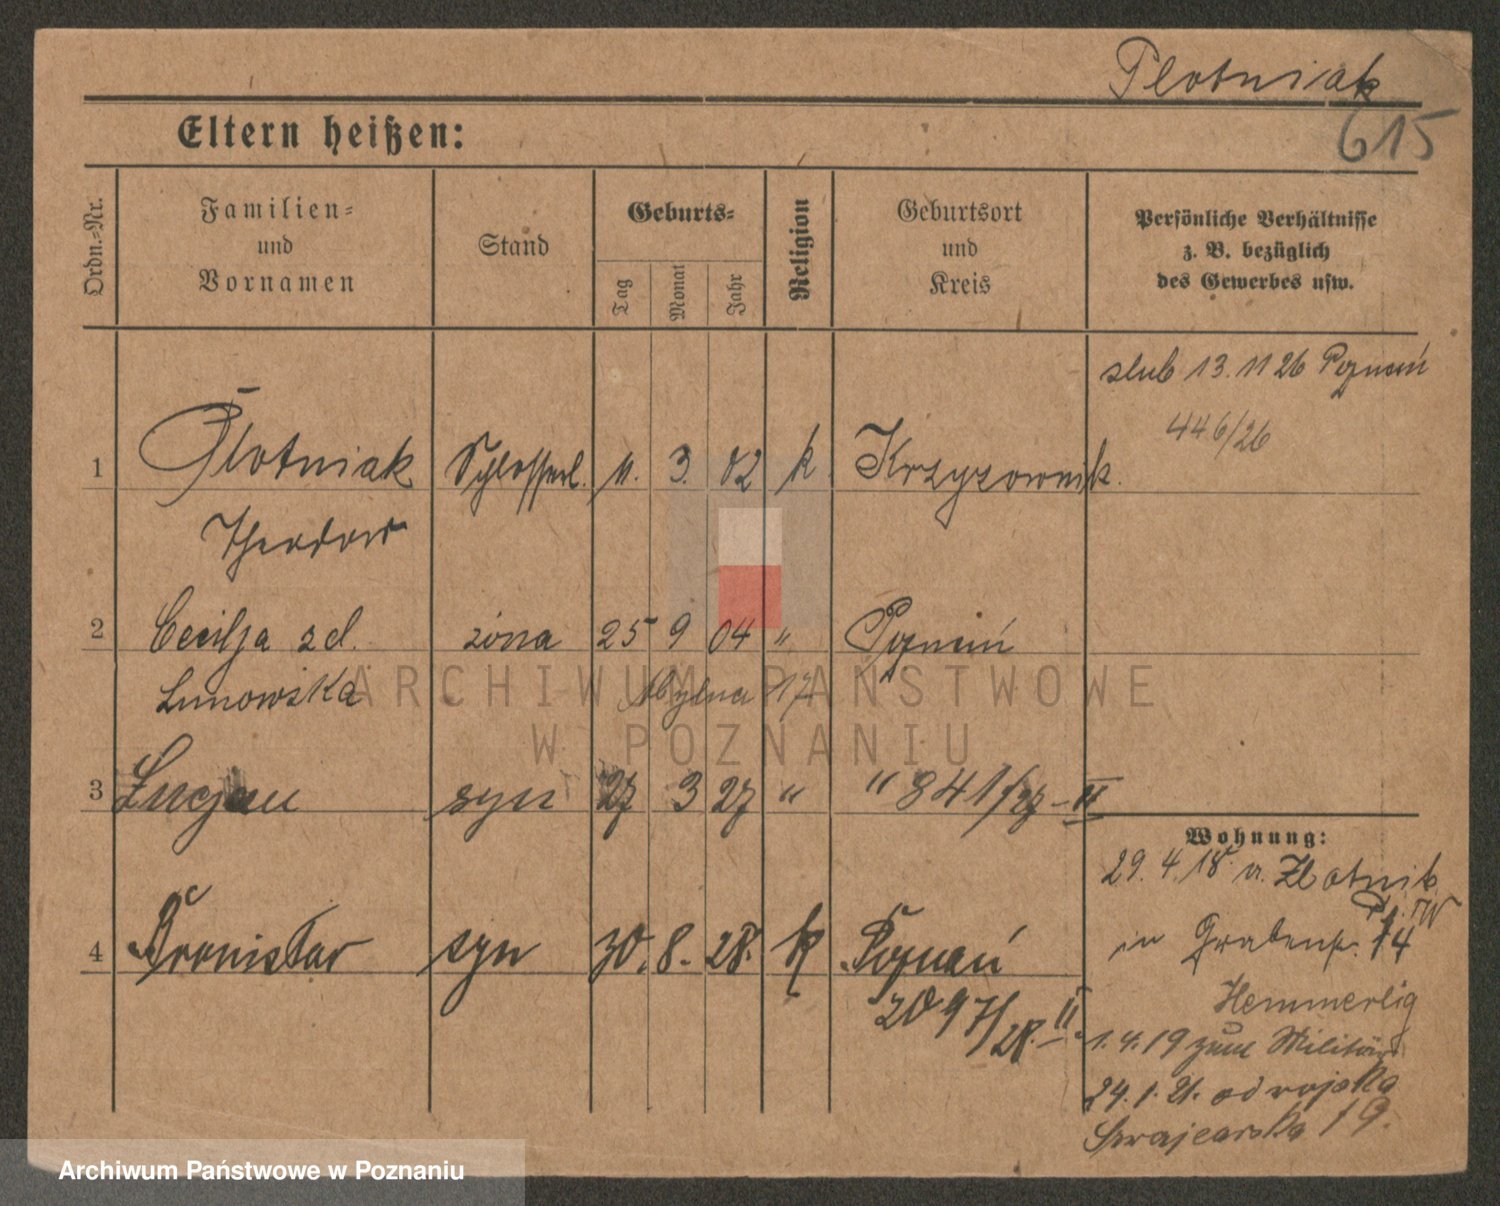 Plotniak
Eltern heißen:
615
Ordn.-Nr.
Familien- und Vornamen
Stand
Geburts-
Tag
Monat
Jahr
Religion
Geburtsort und Kreis
Persönliche Verhältnisse z. B. bezüglich des Gewerbes usw.
slub 13. 11 26 Poznań
446/26
1 Plotniak Schlosserl. 11. 3. 02 k Krzyzownik.
Theodor
2 Cecilja zd. żona 25 9 04 " Poznań
Lunowska 17
3 Lucjan syn 27 3 27 " " 841/27 - II
Wohnung:
29. 4. 18 v. Zlotnik
4 Bronisław syn 30. 8. 28. k Poznań
in Grabenstr. 14
2097/28. II
Hemmerlig
1. 4. 19 zum Militär
24. 1. 21. od wojska
Szwajcarska 19.
ARCHIWUM PAŃSTWOWE
W POZNANIU
Archiwum Państwowe w Poznaniu